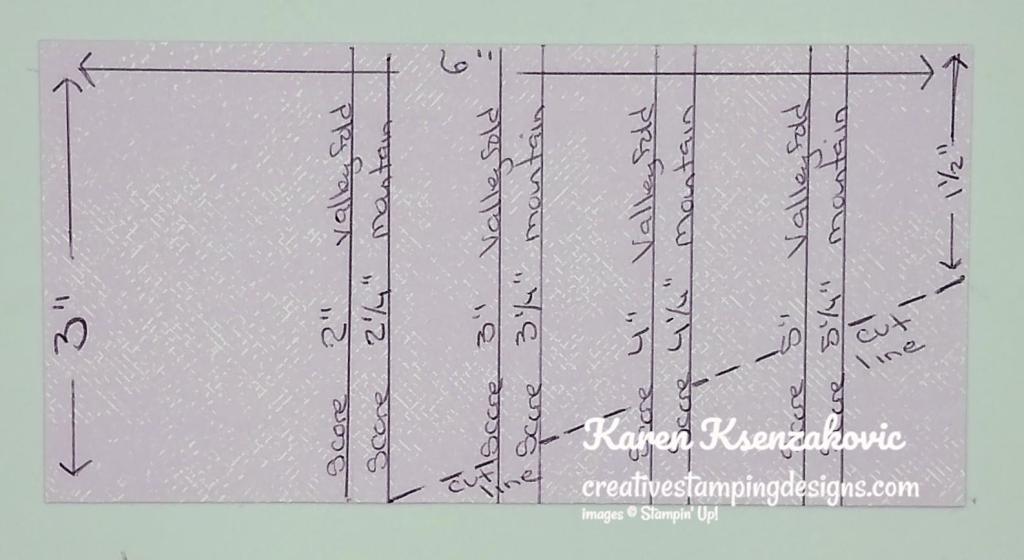 3"
6"
1½"
Score 2" valley fold
Score 2¼" mountain
Score 3" valley fold
Score 3¼" mountain
Score 4" valley fold
Score 4¼" mountain
Score 5" valley fold
Score 5¼" mountain
cut
line
cut
line
Karen Ksenzakovic
creativestampingdesigns.com
images © Stampin' Up!